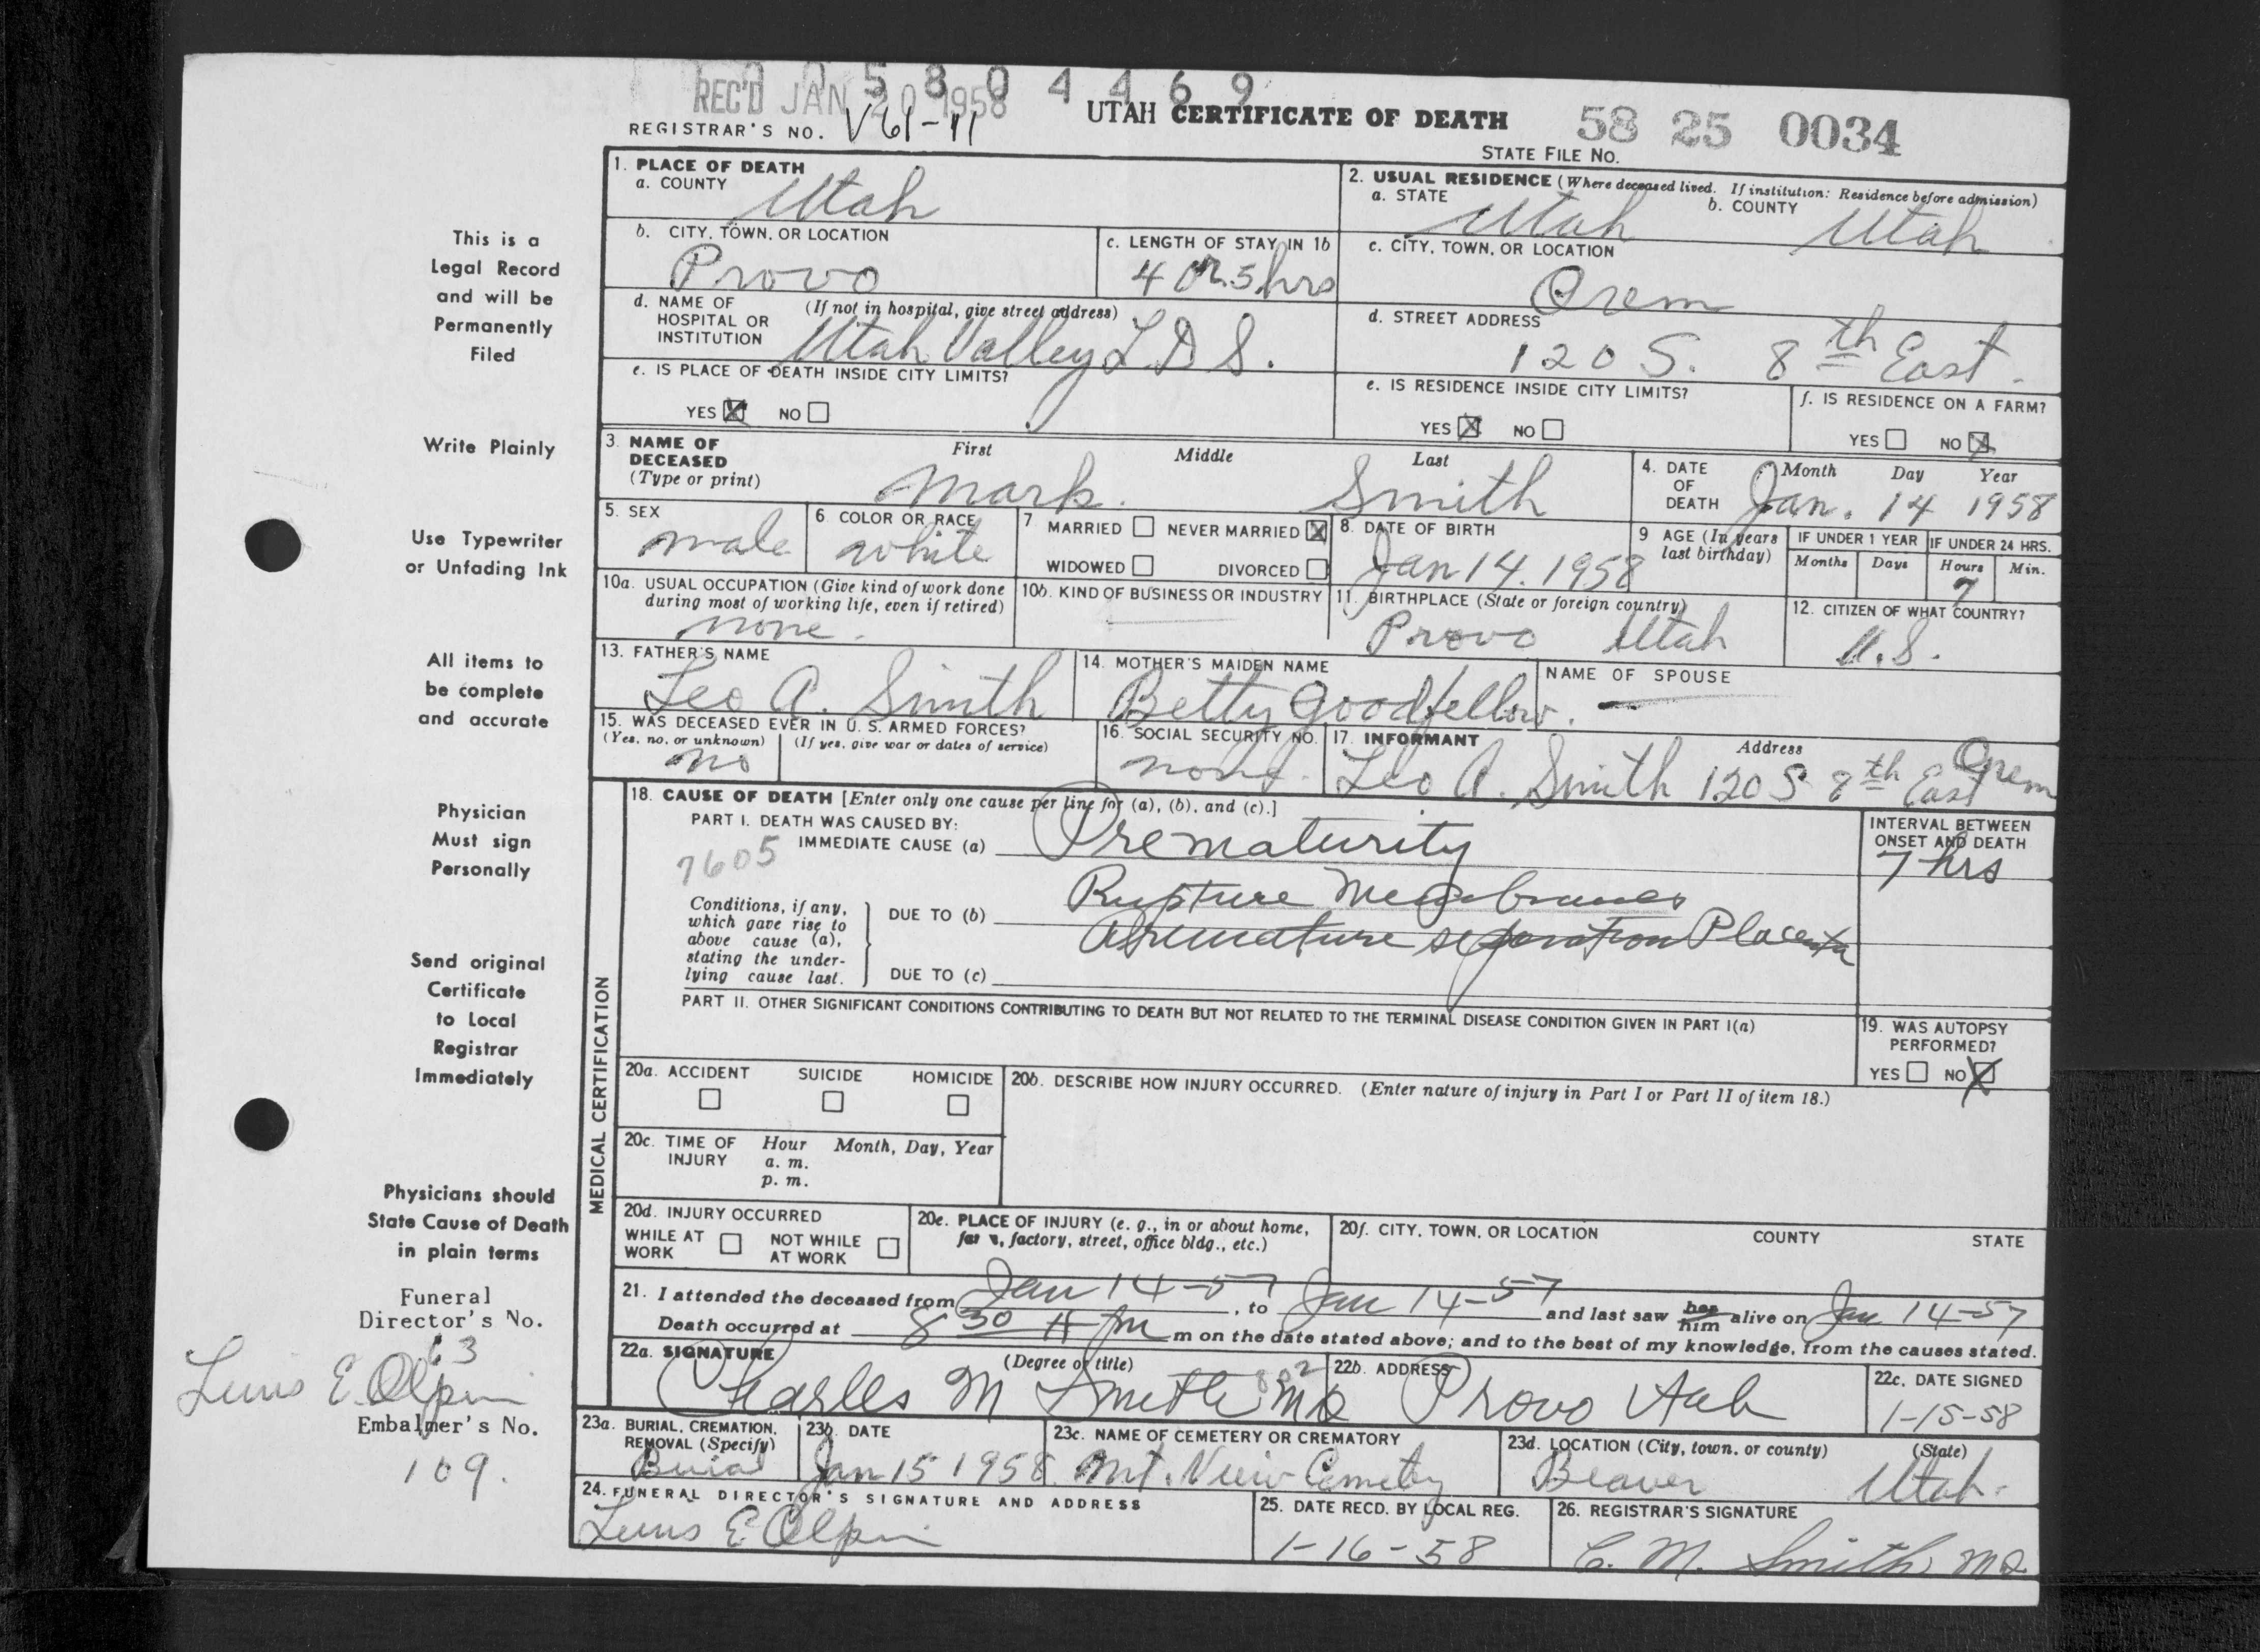 0 0 5 8 0 4 4 6 9
REC'D JAN 20 1958
REGISTRAR'S NO. V61-11
UTAH CERTIFICATE OF DEATH
58 25 0034
STATE FILE No.
1. PLACE OF DEATH
a. COUNTY Utah
2. USUAL RESIDENCE (Where deceased lived. If institution: Residence before admission)
a. STATE Utah b. COUNTY Utah
b. CITY, TOWN, OR LOCATION Provo
c. LENGTH OF STAY IN 1b 4 or 5 hrs
c. CITY, TOWN, OR LOCATION Orem
d. NAME OF HOSPITAL OR INSTITUTION (If not in hospital, give street address) Utah Valley L D S.
d. STREET ADDRESS 120 S. 8th East.
e. IS PLACE OF DEATH INSIDE CITY LIMITS?
YES X NO
e. IS RESIDENCE INSIDE CITY LIMITS?
YES X NO
f. IS RESIDENCE ON A FARM?
YES NO X
3. NAME OF DECEASED (Type or print)
First Middle Last
Mark. Smith
4. DATE OF DEATH
Month Day Year
Jan. 14 1958
5. SEX male
6. COLOR OR RACE white
7. MARRIED NEVER MARRIED X
WIDOWED DIVORCED
8. DATE OF BIRTH Jan 14. 1958
9 AGE (In years last birthday)
IF UNDER 1 YEAR IF UNDER 24 HRS.
Months Days Hours Min.
7
10a. USUAL OCCUPATION (Give kind of work done during most of working life, even if retired)
none.
10b. KIND OF BUSINESS OR INDUSTRY
11. BIRTHPLACE (State or foreign country)
Provo Utah
12. CITIZEN OF WHAT COUNTRY?
U.S.
13. FATHER'S NAME
Leo A. Smith
14. MOTHER'S MAIDEN NAME
Betty Goodfellow.
NAME OF SPOUSE
15. WAS DECEASED EVER IN U. S. ARMED FORCES?
(Yes, no, or unknown) (If yes, give war or dates of service)
no
16. SOCIAL SECURITY NO.
none.
17. INFORMANT Address
Leo A. Smith 120 S 8th East Orem
18. CAUSE OF DEATH [Enter only one cause per line for (a), (b), and (c).]
PART I. DEATH WAS CAUSED BY:
IMMEDIATE CAUSE (a) Prematurity
7605
INTERVAL BETWEEN ONSET AND DEATH
7 hrs
Conditions, if any, which gave rise to above cause (a), stating the underlying cause last.
DUE TO (b) Rupture Membranes
Premature separation Placenta
DUE TO (c)
PART II. OTHER SIGNIFICANT CONDITIONS CONTRIBUTING TO DEATH BUT NOT RELATED TO THE TERMINAL DISEASE CONDITION GIVEN IN PART I(a)
19. WAS AUTOPSY PERFORMED?
YES NO X
MEDICAL CERTIFICATION
20a. ACCIDENT SUICIDE HOMICIDE
20b. DESCRIBE HOW INJURY OCCURRED. (Enter nature of injury in Part I or Part II of item 18.)
20c. TIME OF INJURY Hour Month, Day, Year
a. m.
p. m.
20d. INJURY OCCURRED
WHILE AT WORK NOT WHILE AT WORK
20e. PLACE OF INJURY (e. g., in or about home, farm, factory, street, office bldg., etc.)
20f. CITY, TOWN, OR LOCATION COUNTY STATE
21. I attended the deceased from Jan 14-57, to Jan 14-57 and last saw her him alive on Jan 14-57
Death occurred at 8 30 m on the date stated above; and to the best of my knowledge, from the causes stated.
22a. SIGNATURE (Degree or title)
Charles M Smith MD
802
22b. ADDRESS
Provo Utah
22c. DATE SIGNED
1-15-58
23a. BURIAL, CREMATION, REMOVAL (Specify)
Burial
23b. DATE
Jan 15 1958
23c. NAME OF CEMETERY OR CREMATORY
Mt. View Cemetery
23d. LOCATION (City, town, or county) (State)
Beaver Utah.
24. FUNERAL DIRECTOR'S SIGNATURE AND ADDRESS
E. Olpin
25. DATE RECD. BY LOCAL REG.
1-16-58
26. REGISTRAR'S SIGNATURE
C. M. Smith, MD
This is a
Legal Record
and will be
Permanently
Filed
Write Plainly
Use Typewriter
or Unfading Ink
All items to
be complete
and accurate
Physician
Must sign
Personally
Send original
Certificate
to Local
Registrar
Immediately
Physicians should
State Cause of Death
in plain terms
Funeral
Director's No.
63
E. Olpin
Embalmer's No.
109.